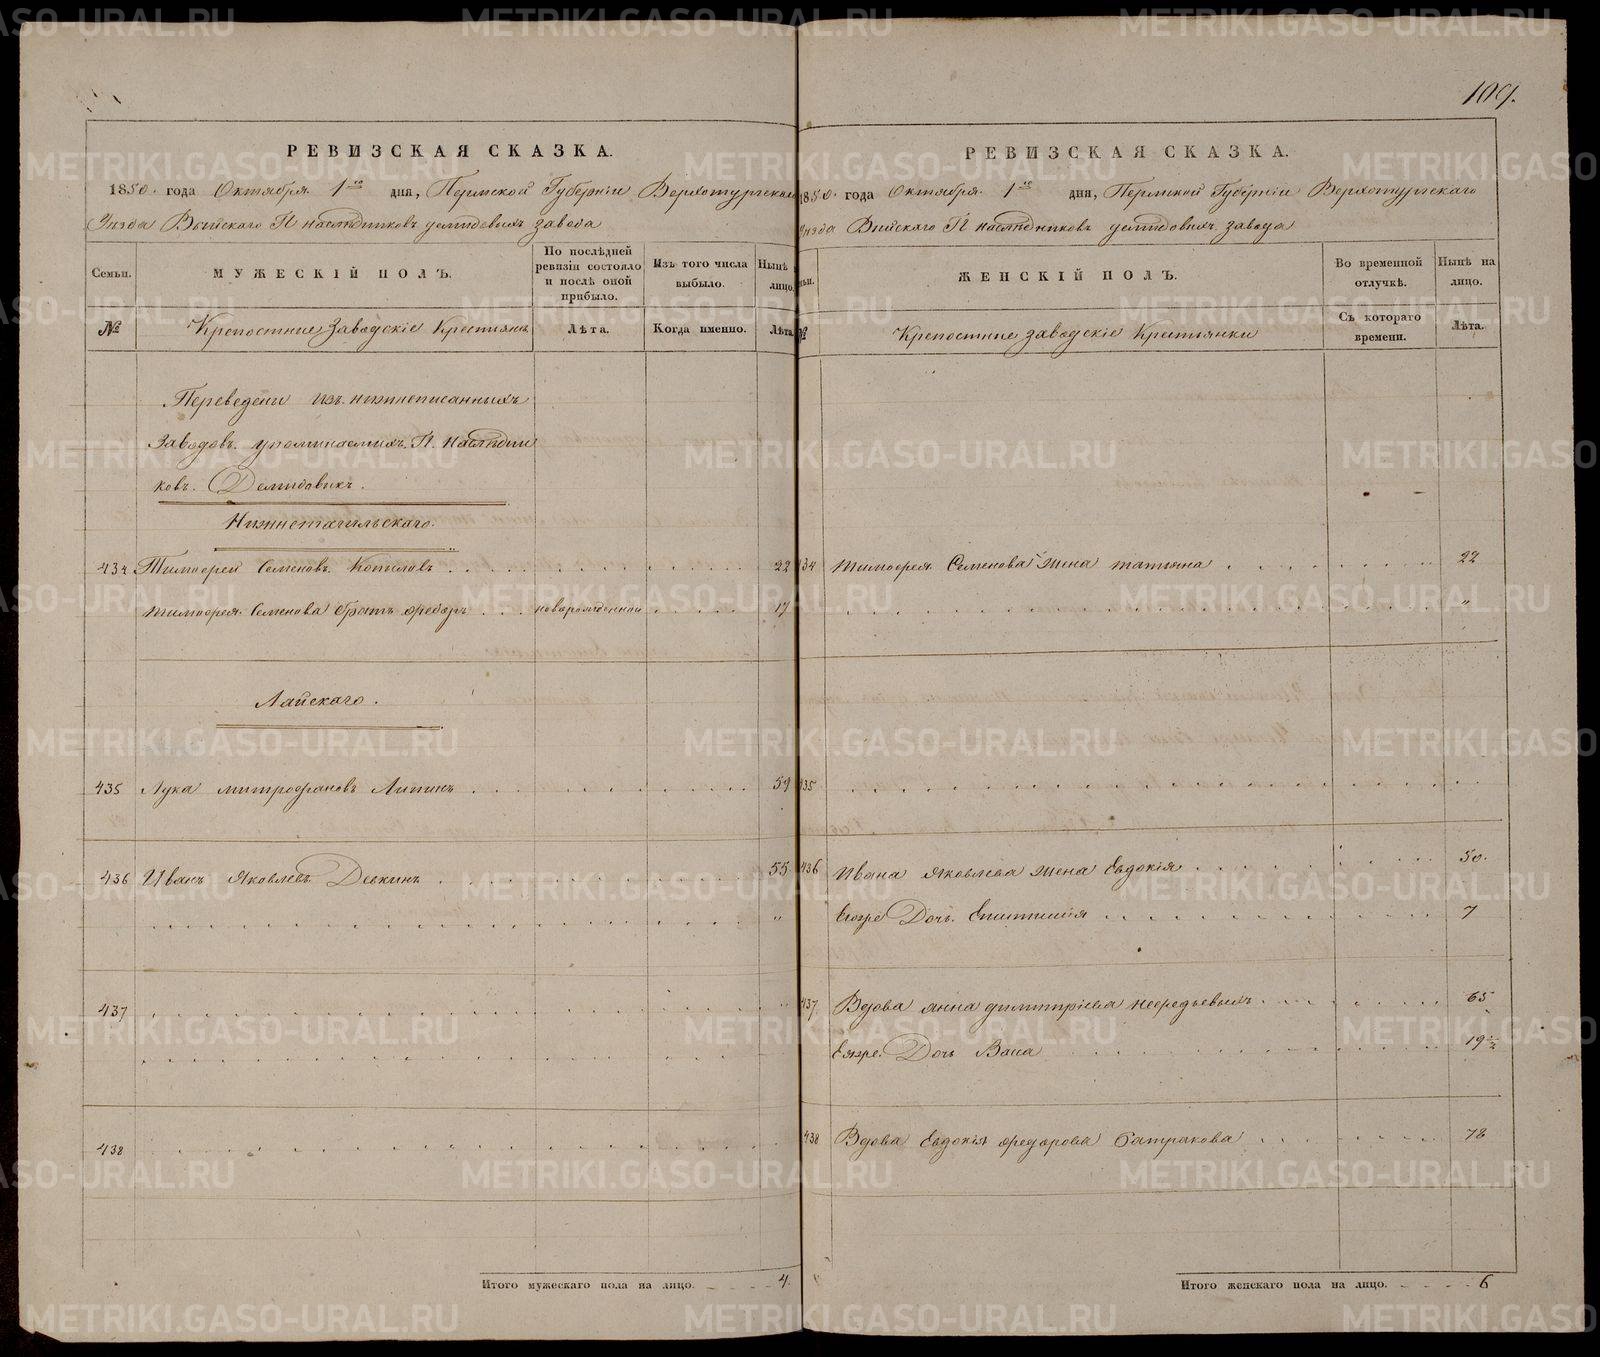 109.
РЕВИЗСКАЯ СКАЗКА.
1850. года Октября 1го дня, Пермской Губерніи Верхотурскаго
Уезда Выйскаго Гг наслѣдниковъ Демидовыхъ завода
Семьи.
МУЖЕСКІЙ ПОЛЪ.
По послѣдней ревизіи состояло и послѣ оной прибыло.
Изъ того числа выбыло.
Нынѣ лицо.
№
Крепостные Заводскіе Крестьянъ
Лѣта.
Когда именно.
Лѣта.
Переведены изъ нижнеписанныхъ
Заводовъ упоминаемыхъ Гг. Наслѣдни
ковъ. Демидовыхъ.
Нижнетагильскаго.
434 Тимофей Семеновъ Копыловъ 22
Тимофея Семенова братъ Федоръ новорожденной 17
Лайскаго.
435 Лука Митрофановъ Липинъ 59
436 Иванъ Яковлевъ Девкинъ 55
"
437
438
Итого мужескаго пола на лицо. 4.
РЕВИЗСКАЯ СКАЗКА.
1850. года Октября 1го дня, Пермской Губерніи Верхотурскаго
Уезда Выйскаго Гг наслѣдниковъ Демидовыхъ завода
ЖЕНСКІЙ ПОЛЪ.
Во временной отлучкѣ.
Нынѣ на лицо.
№
Крепостные заводскіе Крестьянки
Съ котораго времени.
Лѣта.
434 Тимофея Семенова жена Татьяна 22
"
435
436 Ивана Яковлева жена Евдокія 50.
Ихъ Дочь Епистимія 7
437 Вдова Анна Димитріева 65
Ея Дочь Васа 19½
438 Вдова Евдокія Федорова Сатракова 78
Итого женскаго пола на лицо. 6
METRIKI.GASO-URAL.RU